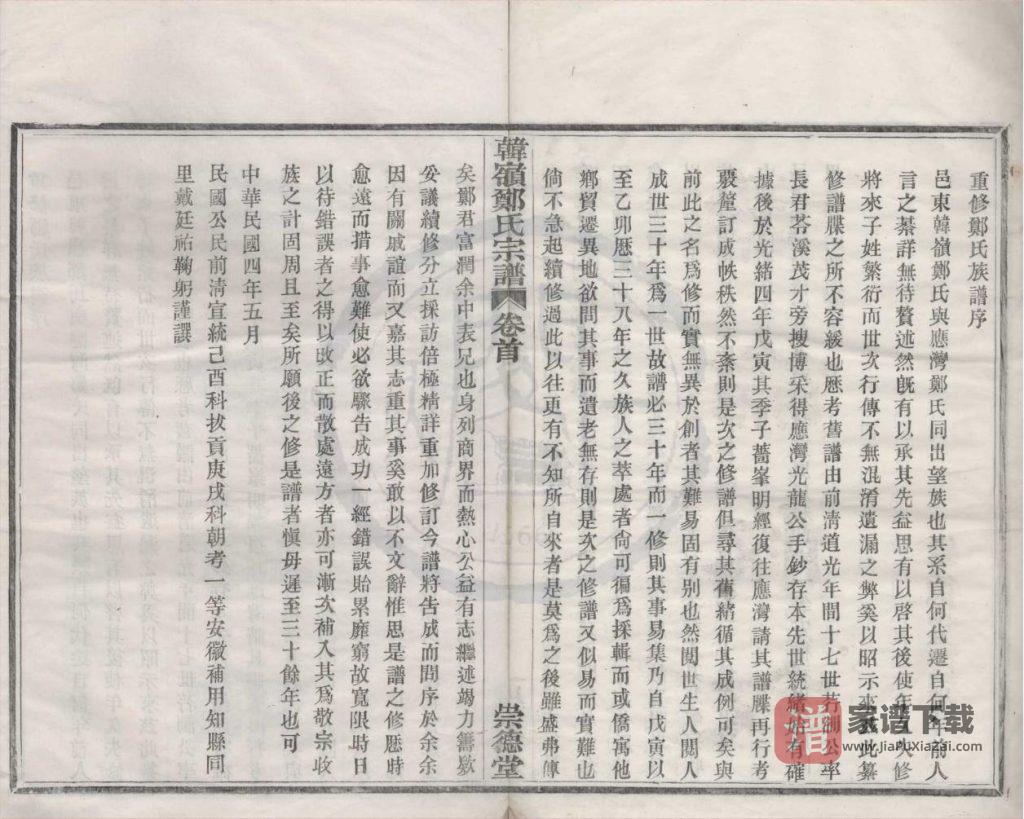 重修鄭氏族譜序
邑東韓嶺鄭氏與應灣鄭氏同出望族也其系自何代遷自何年前人
言之綦詳無待贅述然旣有以承其先益思有以啓其後使年
修
將來子姓繁衍而世次行傳不無混淆遺漏之弊奚以昭示來
此纂
修譜牒之所不容緩也歷考舊譜由前淸道光年間十七世
公率
長君芩溪茂才旁搜博采得應灣光龍公手鈔存本先世統緒始有確
據後於光緒四年戊寅其季子薔峯明經復往應灣請其譜牒再行考
覈釐訂成帙秩然不紊則是次之修譜但尋其舊緒循其成例可矣與
前此之名爲修而實無異於創者其難易固有別也然閱世生人閱人
成世三十年爲一世故譜必三十年而一修則其事易集乃自戊寅以
至乙卯歷三十八年之久族人之萃處者尙可徧爲採輯而或僑寓他
鄉貿遷異地欲問其事而遺老無存則是次之修譜又似易而實難也
倘不急起續修過此以往更有不知所自來者是莫爲之後雖盛弗傳
韓嶺鄭氏宗譜 卷首 崇德堂
矣鄭君富潤余中表兄也身列商界而熱心公益有志繼述竭力舊數
妥議續修分立採訪倍極精詳重加修訂今譜將告成而問序於余余
因有關戚誼而又嘉其志重其事奚敢以不文辭惟思是譜之修歷時
愈遠而措事愈難使必欲驟告成功一經錯誤貽累靡窮故寬限時日
以待錯誤者之得以改正而散處遠方者亦可漸次補入其爲敬宗收
族之計固周且至矣所願後之修是譜者愼毋遲至三十餘年也可
中華民國四年五月
民國公民前淸宣統己酉科拔貢庚戌科朝考一等安徽補用知縣同
里戴廷祐鞠躬謹譔
譜
家谱下载
www.jiaPuXiazai.com